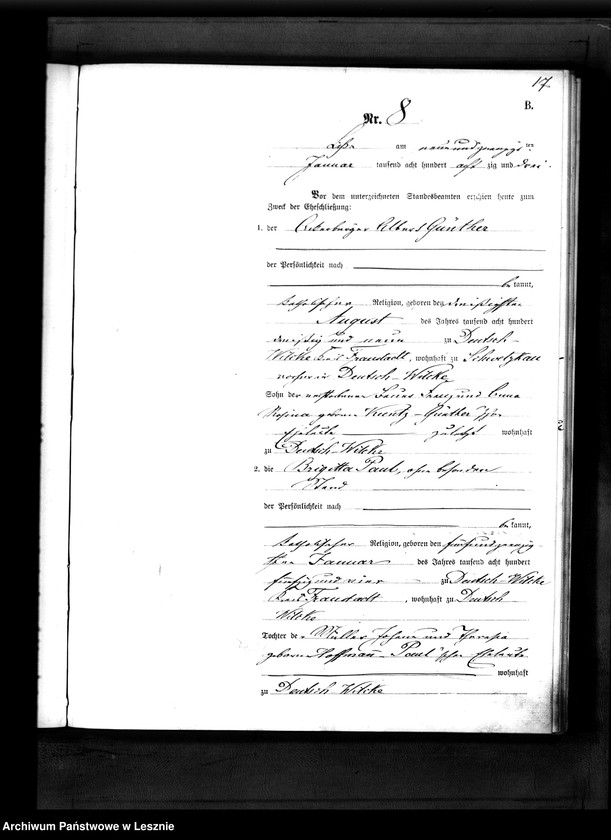 17
B.
Nr. 8
Lissa am neunundzwanzigsten
Januar tausend acht hundert achtzig und drei.
Vor dem unterzeichneten Standesbeamten erschien heute zum
Zweck der Eheschließung:
1. der Ackerbürger Albert Günther
der Persönlichkeit nach
bekannt,
katholischer Religion, geboren den dreißigsten
August des Jahres tausend acht hundert
dreißig und neun zu Deutsch-
Wilcke Kreis Fraustadt, wohnhaft zu Schwetzkau
vorher in Deutsch-Wilcke
Sohn der verstorbenen Franz und Anna
Rosina geborene Kuntz-Günther'schen
Eheleute zuletzt wohnhaft
zu Deutsch-Wilcke
2. die Brigitta Paul, ohne besonderen
Stand
der Persönlichkeit nach
bekannt,
katholischer Religion, geboren den fünfundzwanzig-
sten Januar des Jahres tausend acht hundert
fünfzig und vier zu Deutsch Wilcke
Kreis Fraustadt, wohnhaft zu Deutsch-
Wilcke
Tochter der Müller Johann und Theresia
geborene Hoffmann-Paul'schen Eheleute
wohnhaft
zu Deutsch Wilcke
Archiwum Państwowe w Lesznie